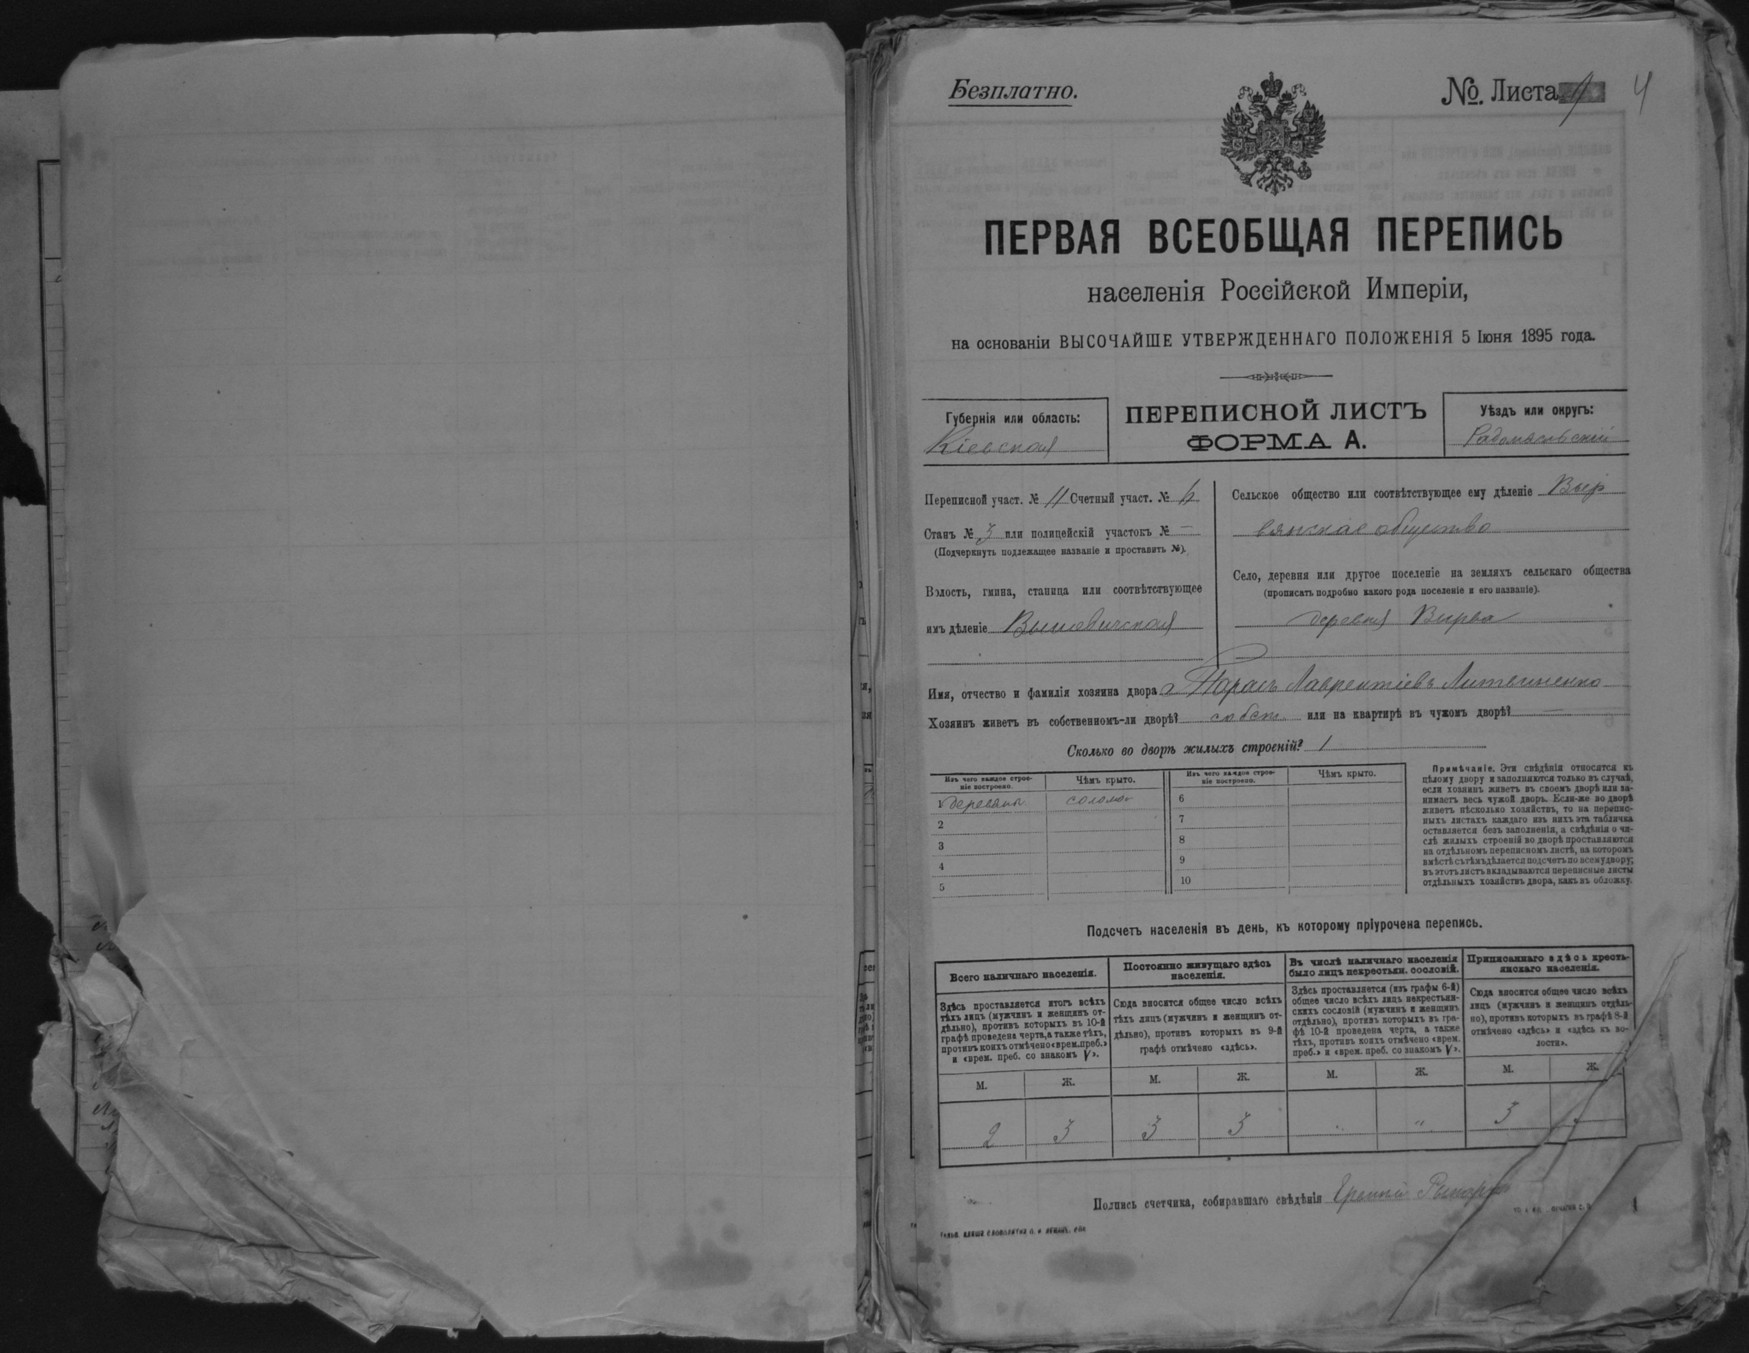 Безплатно.
№. Листа 4
ПЕРВАЯ ВСЕОБЩАЯ ПЕРЕПИСЬ
населенія Россійской Имперіи,
на основаніи ВЫСОЧАЙШЕ УТВЕРЖДЕННАГО ПОЛОЖЕНІЯ 5 Іюня 1895 года.
Губернія или область:
Кіевская
ПЕРЕПИСНОЙ ЛИСТЪ
ФОРМА А.
Уѣздъ или округъ:
Радомысльскій
Переписной участ. № 11 Счетный участ. №
Станъ № 3 или полицейскій участокъ № —
(Подчеркнуть подлежащее названіе и проставить №).
Волость, гмина, станица или соотвѣтствующее
имъ дѣленіе Вышевичская
Сельское общество или соотвѣтствующее ему дѣленіе Выр
вянское общество
Село, деревня или другое поселеніе на земляхъ сельскаго общества
(прописать подробно какого рода поселеніе и его названіе).
деревня Вырва
Имя, отчество и фамилія хозяина двора Тарасъ Лаврентіевъ Литвиненко
Хозяинъ живетъ въ собственномъ-ли дворѣ? собст. или на квартирѣ въ чужомъ дворѣ? —
Сколько во дворѣ жилыхъ строеній? 1
Изъ чего каждое строе-
ніе построено.
Чѣмъ крыто.
Изъ чего каждое строе-
ніе построено.
Чѣмъ крыто.
1 деревян солом
2
3
4
5
6
7
8
9
10
Примѣчаніе. Эти свѣдѣнія относятся къ
цѣлому двору и заполняются только въ случаѣ,
если хозяинъ живетъ въ своемъ дворѣ или за-
нимаетъ весь чужой дворъ. Если-же во дворѣ
живетъ нѣсколько хозяйствъ, то на перепис-
ныхъ листахъ каждаго изъ нихъ эта табличка
оставляется безъ заполненія, а свѣдѣнія о чи-
слѣ жилыхъ строеній во дворѣ проставляются
на отдѣльномъ переписномъ листѣ, на которомъ
вмѣстѣ съ тѣмъ дѣлается подсчетъ по всему двору;
въ этотъ листъ вкладываются переписные листы
отдѣльныхъ хозяйствъ двора, какъ въ обложку.
Подсчетъ населенія въ день, къ которому пріурочена перепись.
Всего наличнаго населенія.
Здѣсь проставляется итогъ всѣхъ
тѣхъ лицъ (мужчинъ и женщинъ от-
дѣльно), противъ которыхъ въ 10-й
графѣ проведена черта, а также тѣхъ,
противъ коихъ отмѣчено «врем. преб.»
и «врем. преб. со знакомъ V».
Постоянно живущаго здѣсь
населенія.
Сюда вносится общее число всѣхъ
тѣхъ лицъ (мужчинъ и женщинъ от-
дѣльно), противъ которыхъ въ 9-й
графѣ отмѣчено «здѣсь».
Въ числѣ наличнаго населенія
было лицъ некрестьян. сословій.
Здѣсь проставляется (изъ графы 6-й)
общее число всѣхъ лицъ некрестьян-
скихъ сословій (мужчинъ и женщинъ
отдѣльно), противъ которыхъ въ гра-
фѣ 10-й проведена черта, а также
тѣхъ, противъ коихъ отмѣчено «врем.
преб.» и «врем. преб. со знакомъ V».
Приписаннаго здѣсь кресть-
янскаго населенія.
Сюда вносится общее число всѣхъ
лицъ (мужчинъ и женщинъ отдѣль-
но), противъ которыхъ въ графѣ 8-й
отмѣчено «здѣсь» и «здѣсь къ во-
лости».
М. Ж. М. Ж. М. Ж. М. Ж.
2 3 3 3 " 3
Подпись счетчика, собиравшаго свѣдѣнія